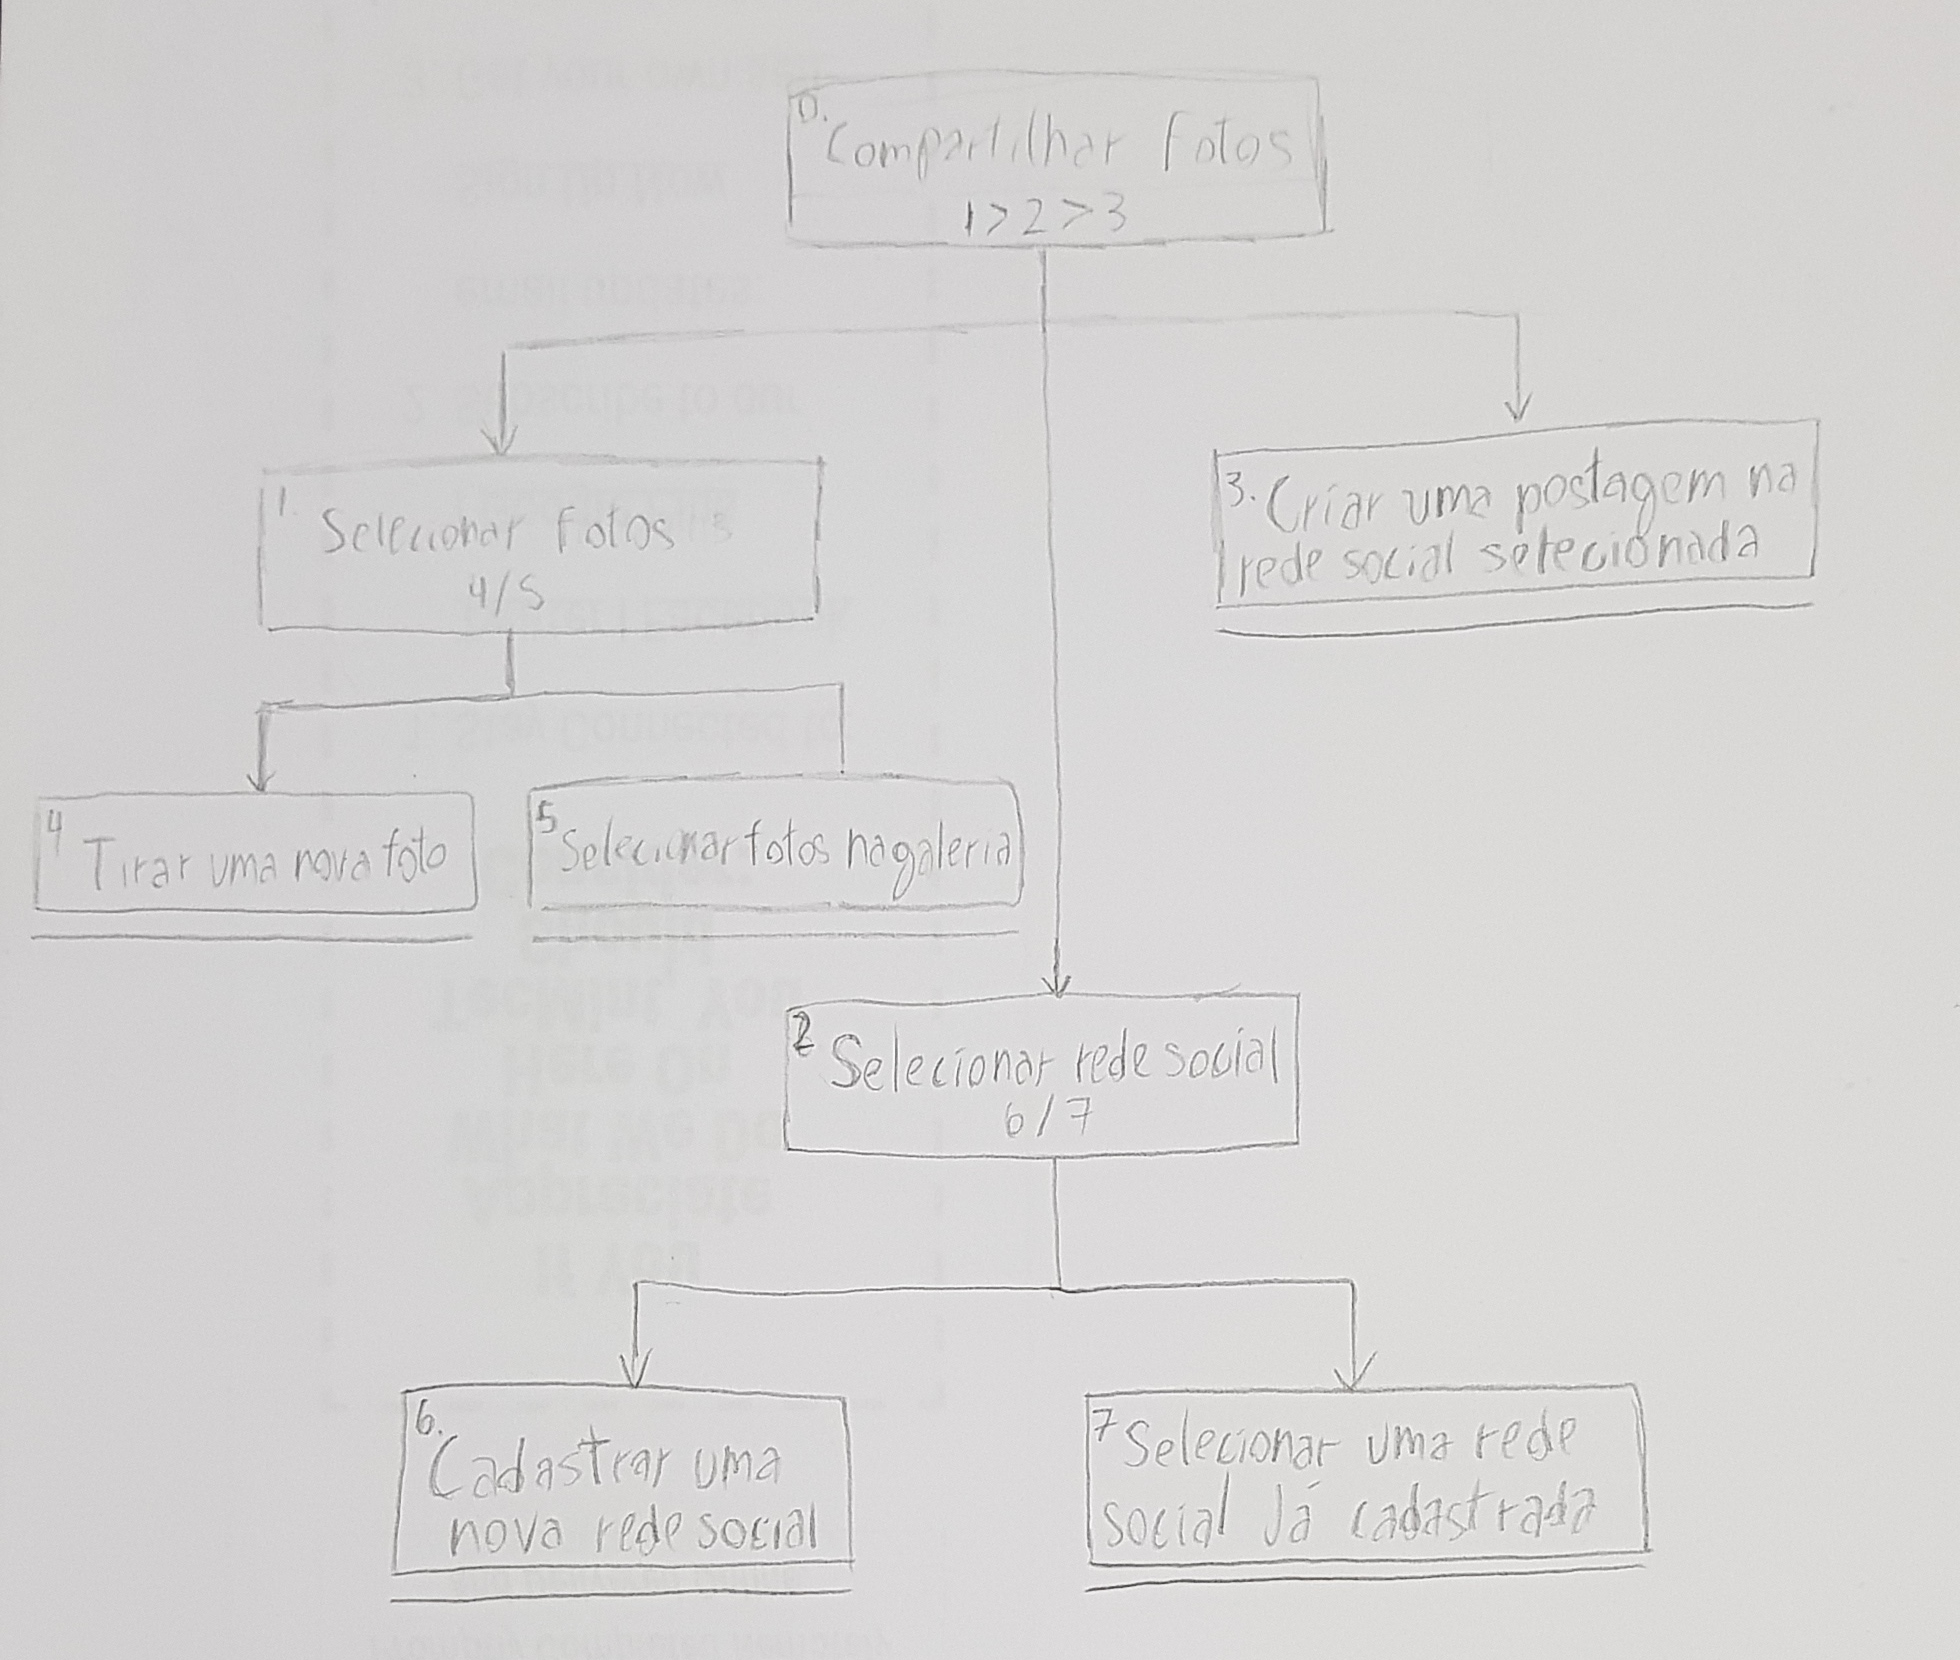 0.
Compartilhar fotos
1>2>3
1.
Selecionar fotos
4/5
3. Criar uma postagem na
rede social selecionada
4
Tirar uma nova foto
5
Selecionar fotos na galeria
2
Selecionar rede social
6/7
6.
Cadastrar uma
nova rede social
7 Selecionar uma rede
social Já cadastrada